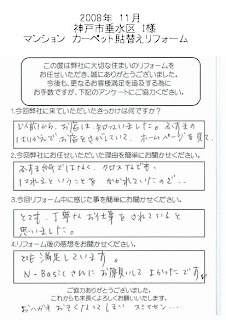 2008年 11月
神戸市垂水区 I様
マンション カーペット貼替えリフォーム
この度は弊社に大切な住まいのリフォームを
お任せいただき、誠にありがとうございました。
今後、更なるお客様満足を追及する為に
お手数ですが、下記のアンケートにご協力ください。
1.今回弊社に来ていただいたきっかけは何ですか?
以前から、お店は知っていました。ふすまの
はりかえでお店をさがしていて、ホームページを見て。
2.今回弊社にお任せいただいた理由を簡単にお聞かせください。
ふすまだけではなく、クロスなども
はれるということをかかれていたので…
3.今回リフォーム中に感じた事を簡単にお聞かせください。
とても、丁寧なお仕事をされていると
思いました。
4.リフォーム後の感想をお聞かせください。
大変満足しています。
N-Basicさんにお願いして よかったです。
ご協力ありがとうございました。
これからも末長くよろしくお願いいたします。
おハガキ おそくなってしまい スミマセン…